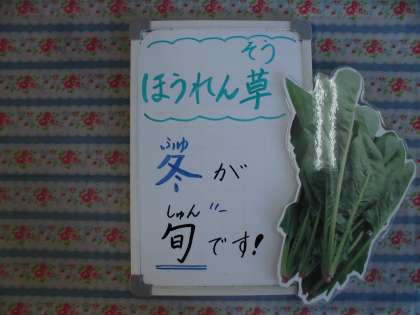 そう
ほうれん草
ふゆ
冬が
しゅん
旬です!